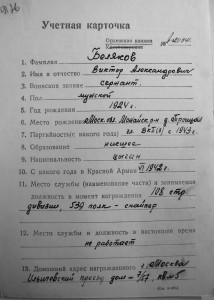 Учетная карточка
Орденской книжки
1. Фамилия Беляков
2. Имя и отчество Виктор Александрович
3. Воинское звание сержант
4. Пол мужской
5. Год рождения 1924 г.
6. Место рождения Моск. обл. Можайский
7. Партийность (с какого года) чл. ВКП(б) с 1943 г.
8. Образование низшее
9. Национальность цыган
10. С какого года в Красной Армии VI 1942 г.
11. Место службы (наименование части) и занимаемая
должность в момент награждения 108 стр.
дивизии, 539 полк - снайпер
12. Место службы и должность в настоящее время
не работает
13. Домашний адрес награжденного г. Москва